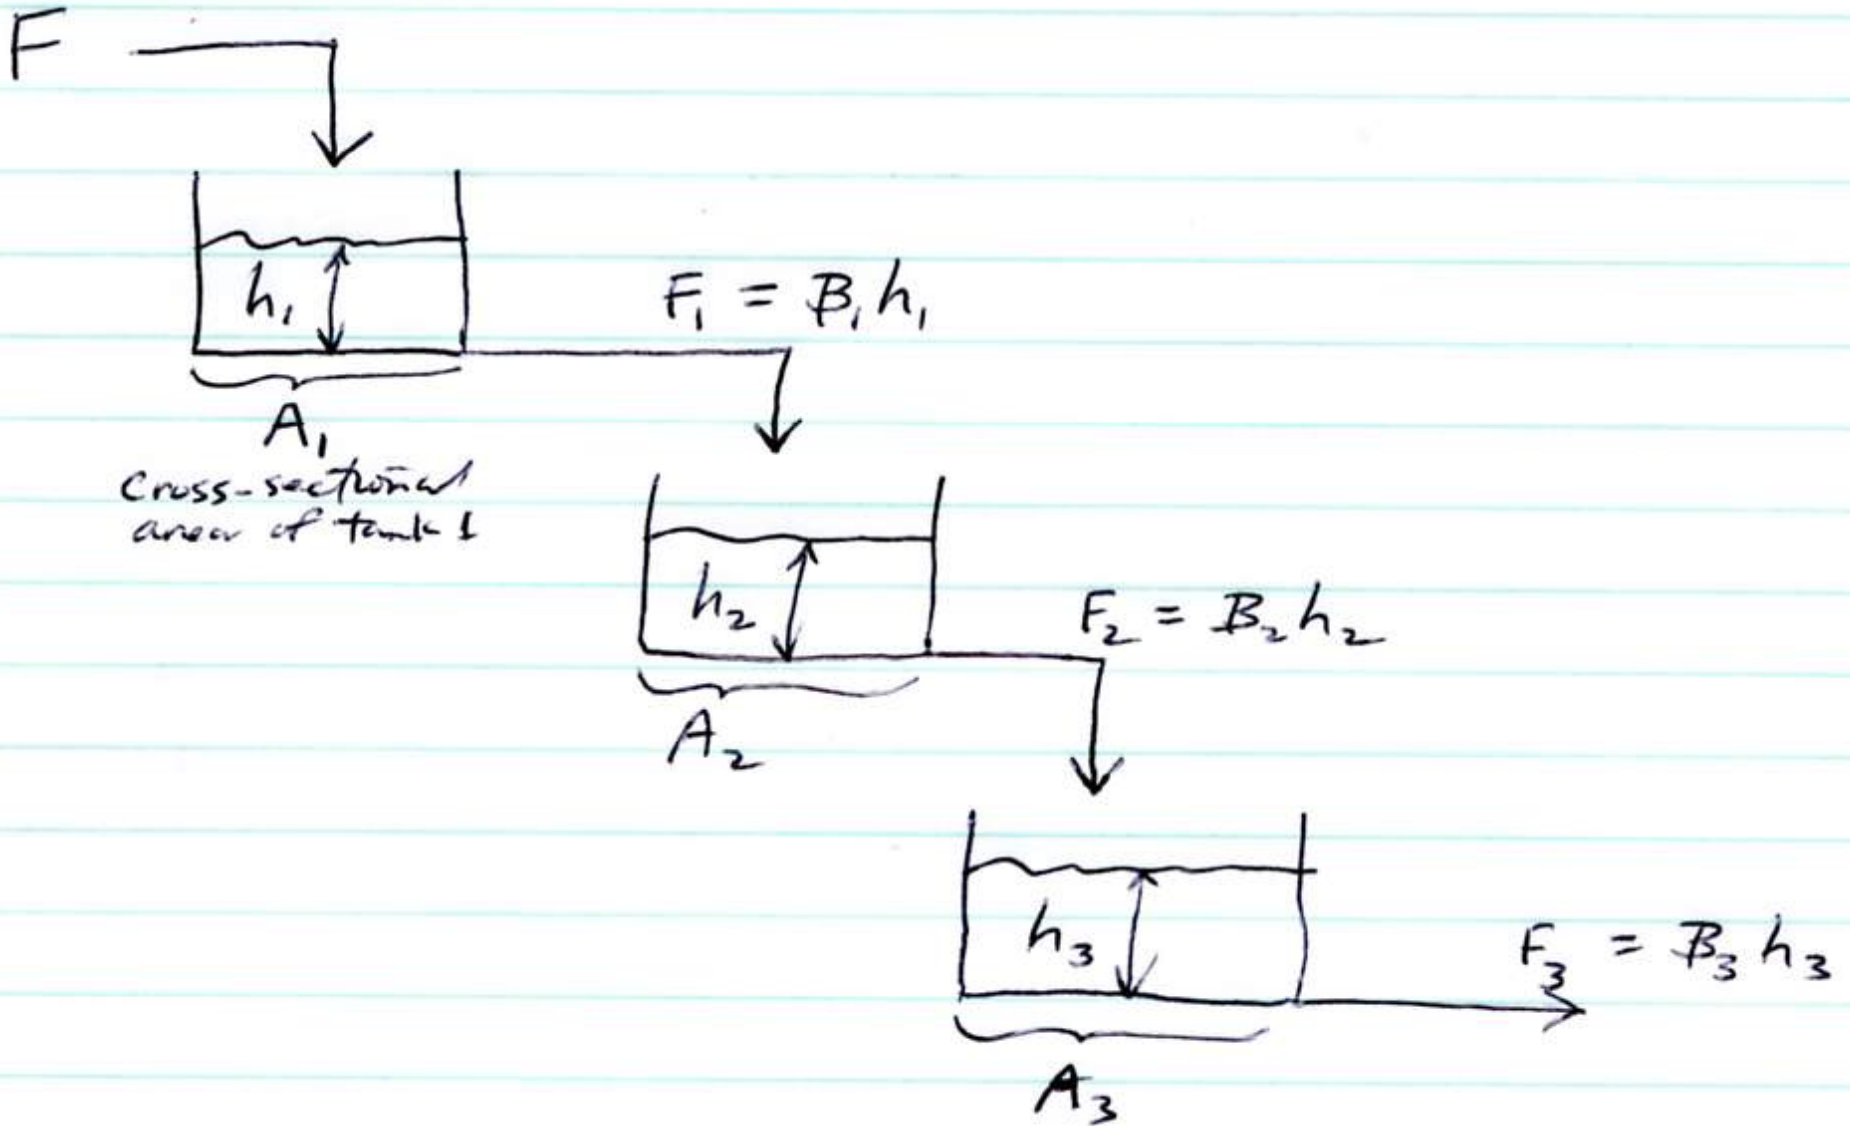 F
h₁
F₁ = B₁h₁
A₁
Cross-sectional
area of tank 1
h₂
F₂ = B₂h₂
A₂
h₃
F₃ = B₃h₃
A₃